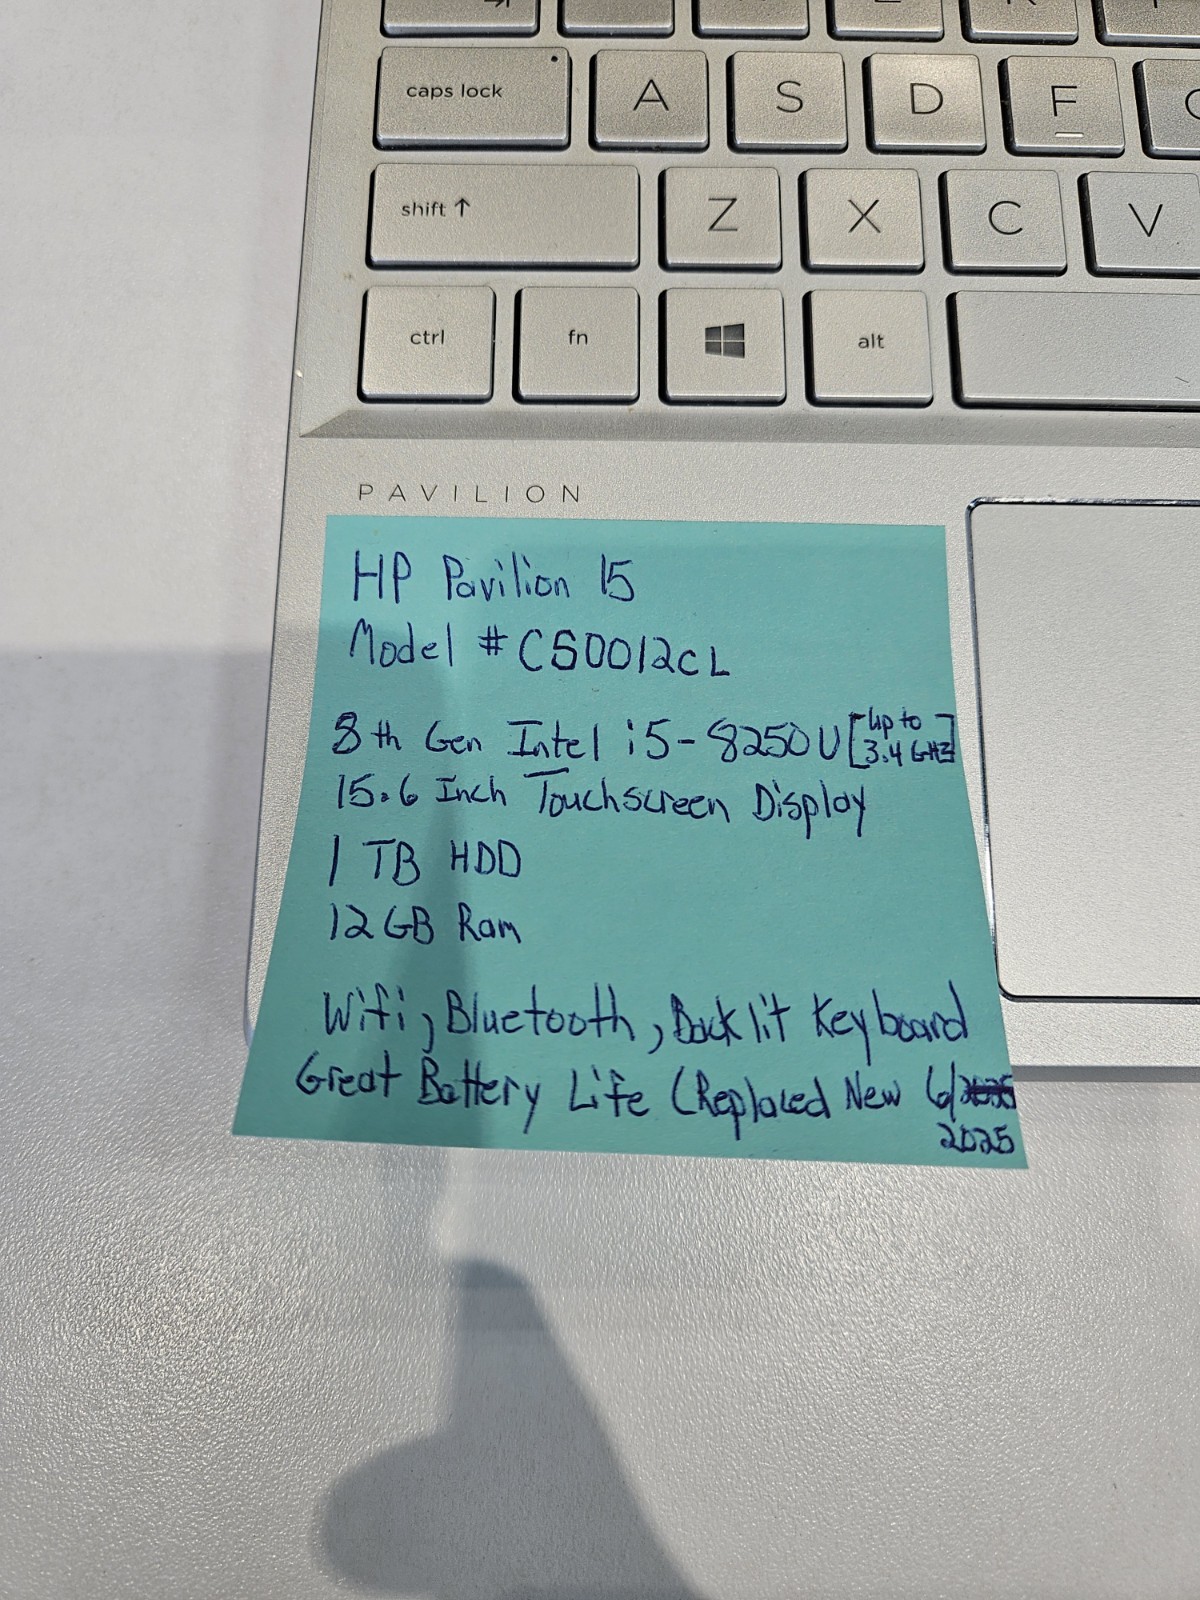 caps lock A S D F
shift ↑ Z X C V
ctrl fn alt
PAVILION
HP Pavilion 15
Model # CS0012CL
8th Gen Intel i5-8250U [up to 3.4 GHz]
15.6 Inch Touchscreen Display
1 TB HDD
12GB Ram
Wifi, Bluetooth, Backlit Keyboard
Great Battery Life (Replaced New 6/
2025